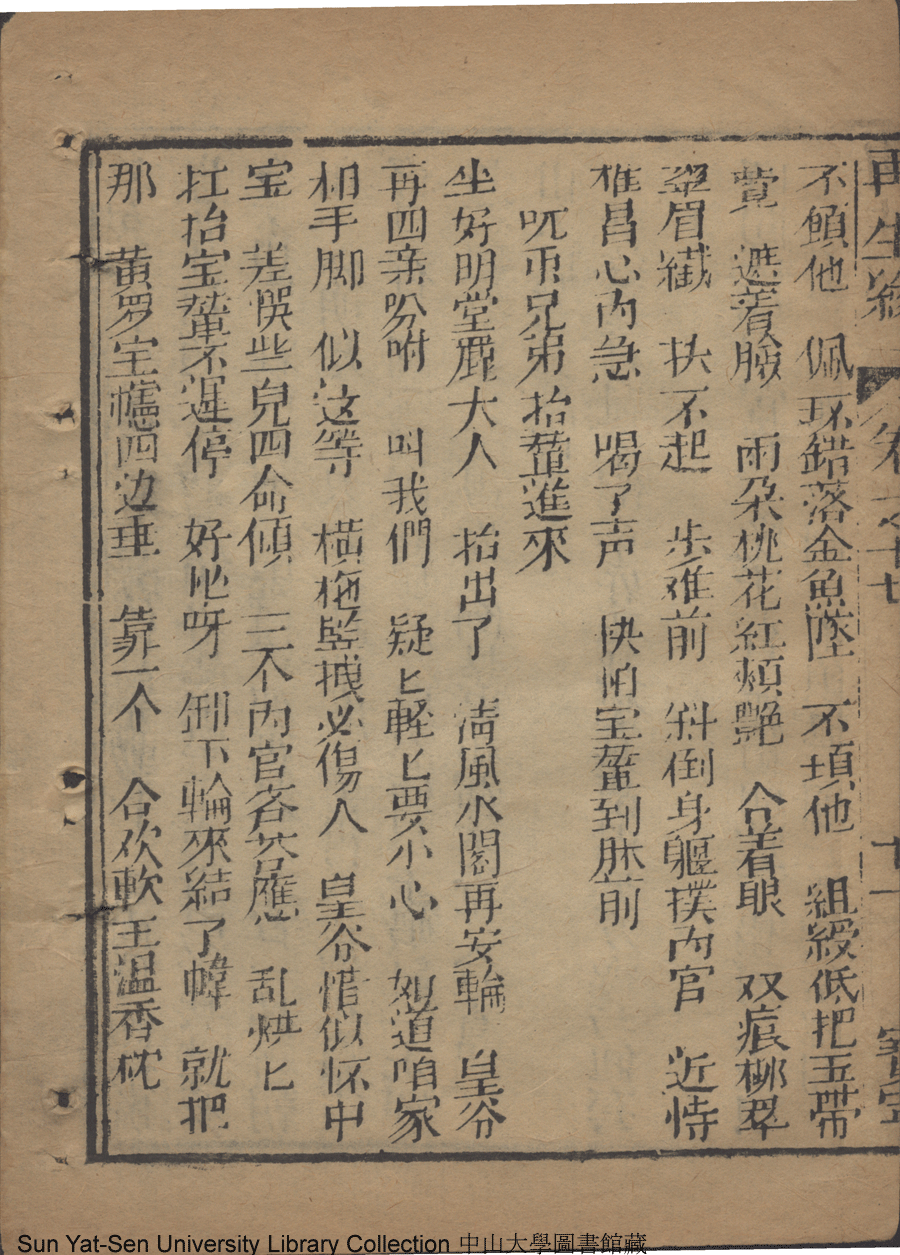 再生緣 卷之十七 十一 寶寧
不傾他　佩环錯落金魚墜　不損他　組綬低把玉帶
蔻　遮着臉　兩朵桃花紅頰艷　合着眼　双痕柳翠
翠眉纖　扶不起　步难前　斜倒身軀撲內官　近恃
權昌心內急　喝了声　快的宝輦到床前
吼吊兄弟抬輦進來
坐好明堂麗大人　抬出了　清風水閣再安輪　皇爷
再四亲吩咐　叫我們　疑匕軽匕要小心　如道咱家
相手脚　似这等　橫拖竪拽必傷人　皇爷惜似怀中
宝　差悞些兒四命傾　三不內官斉答應　乱烘匕
扛抬宝輦不遲停　好吔呀　卸下輪來結了幃　就把
那　黄罗宝幰四边垂　靠一个　合欢軟玉温香枕
Sun Yat-Sen University Library Collection 中山大學圖書館藏